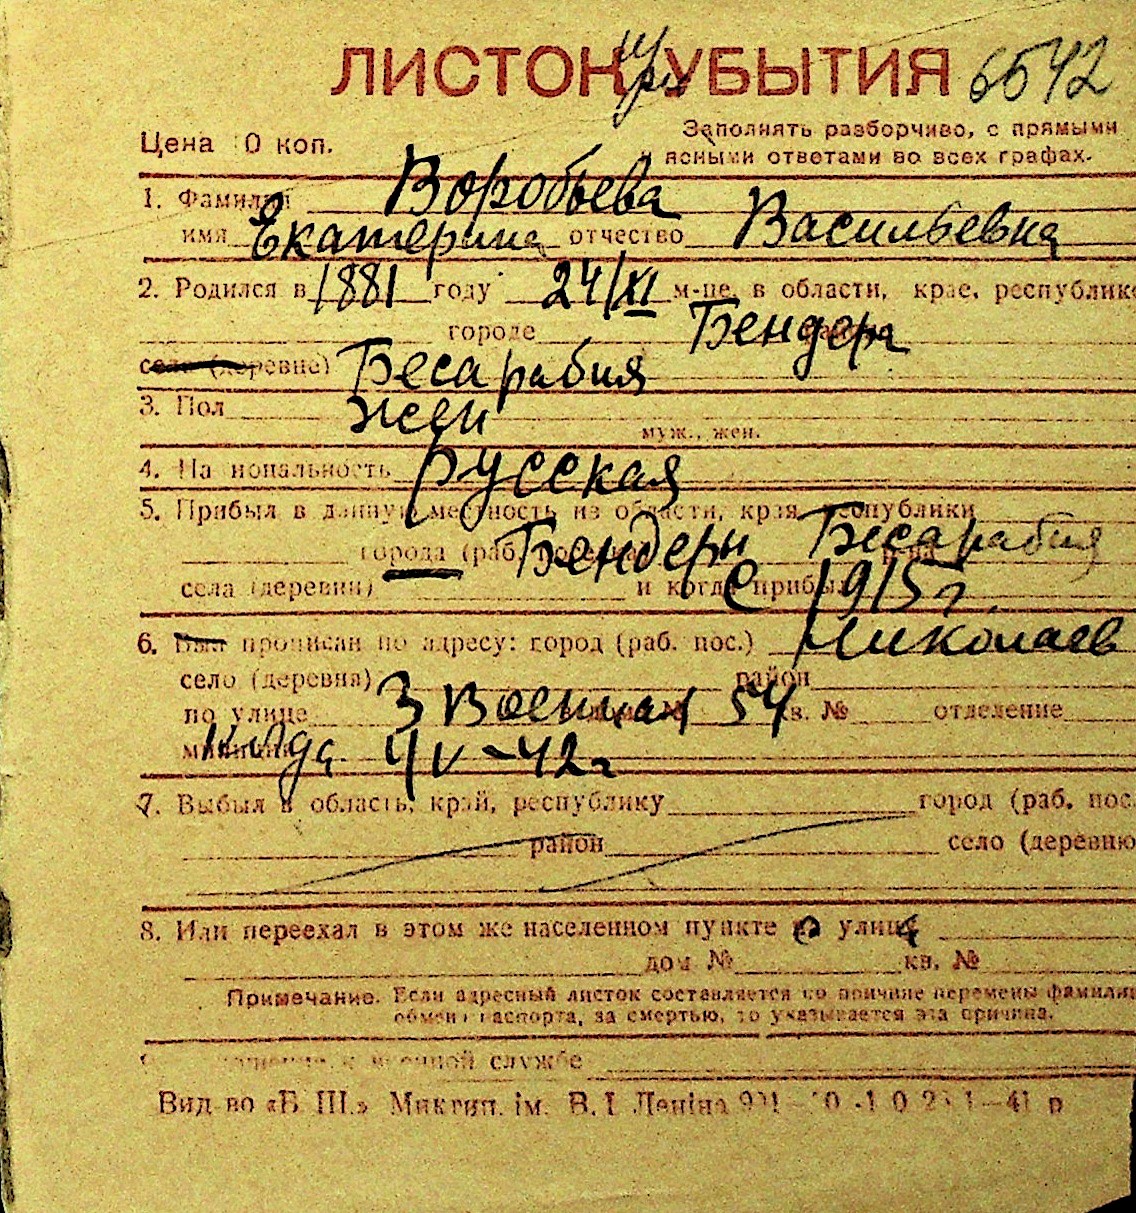 ЛИСТОК УБЫТИЯ 6542
Цена 0 коп.
Заполнять разборчиво, с прямыми
и ясными ответами во всех графах.
1. Фамилия Воробьева
имя Екатерина отчество Васильевна
2. Родился в 1881 году 24/XI м-це, в области, крае, республике
городе Бендеры
село (деревне) Бесарабия
3. Пол жен
муж., жен.
4. На иональность русская
5. Прибыл в данную местность из области, края республики
города (раб. Бендеры Бесарабия
села (деревни) и когда прибыл с 1915 г.
6. Был прописан по адресу: город (раб. пос.) Николаев
село (деревна) район
по улице 3 Военная 54 кв. № отделение
милиции 4/V-42г
7. Выбыл в область, край, республику город (раб. пос.
район село (деревню
8. Или переехал в этом же населенном пункте на улице
дом № кв. №
Примечание. Если адресный листок составляется по причине перемены фамилии
обмена паспорта, за смертью, то указывается эта причина.
военной службе
Вид-во «Б. Ш.» Миктип. ім. В. І. Леніна